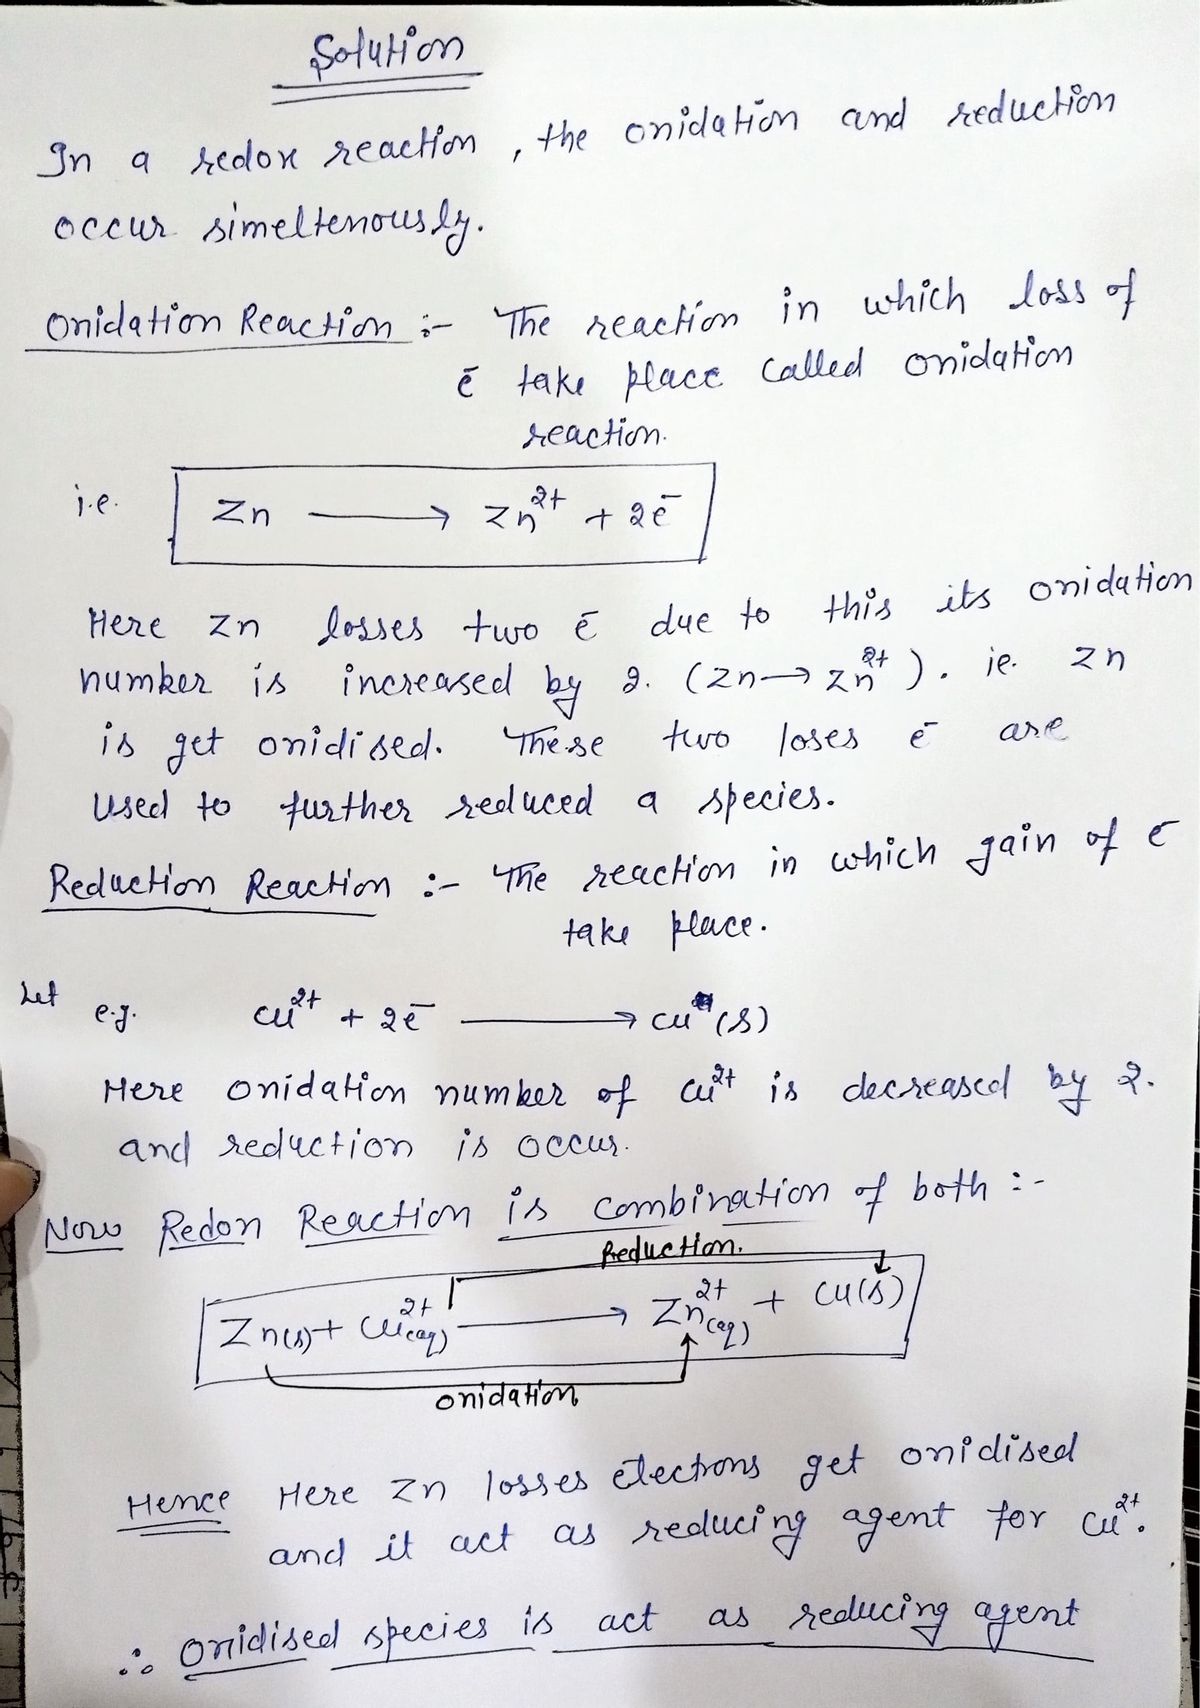 Solution
In a redox reaction, the oxidation and reduction
occur simeltenously.
Oxidation Reaction :- The reaction in which loss of
ē take place called oxidation
reaction.
i.e. Zn → Zn²⁺ + 2ē
Here Zn losses two ē due to this its oxidation
number is increased by 2. (Zn → Zn²⁺). ie. Zn
is get oxidised. These two loses ē are
used to further reduced a species.
Reduction Reaction :- The reaction in which gain of ē
take place.
Let e.g. Cu²⁺ + 2ē → Cu(s)
Here oxidation number of Cu²⁺ is decreased by 2.
and reduction is occur.
Now Redox Reaction is combination of both :-
Reduction.
Zn(s) + Cu²⁺(aq) → Zn²⁺(aq) + Cu(s)
oxidation
Hence Here Zn losses electrons get oxidised
and it act as reducing agent for Cu²⁺.
∴ Oxidised species is act as reducing agent